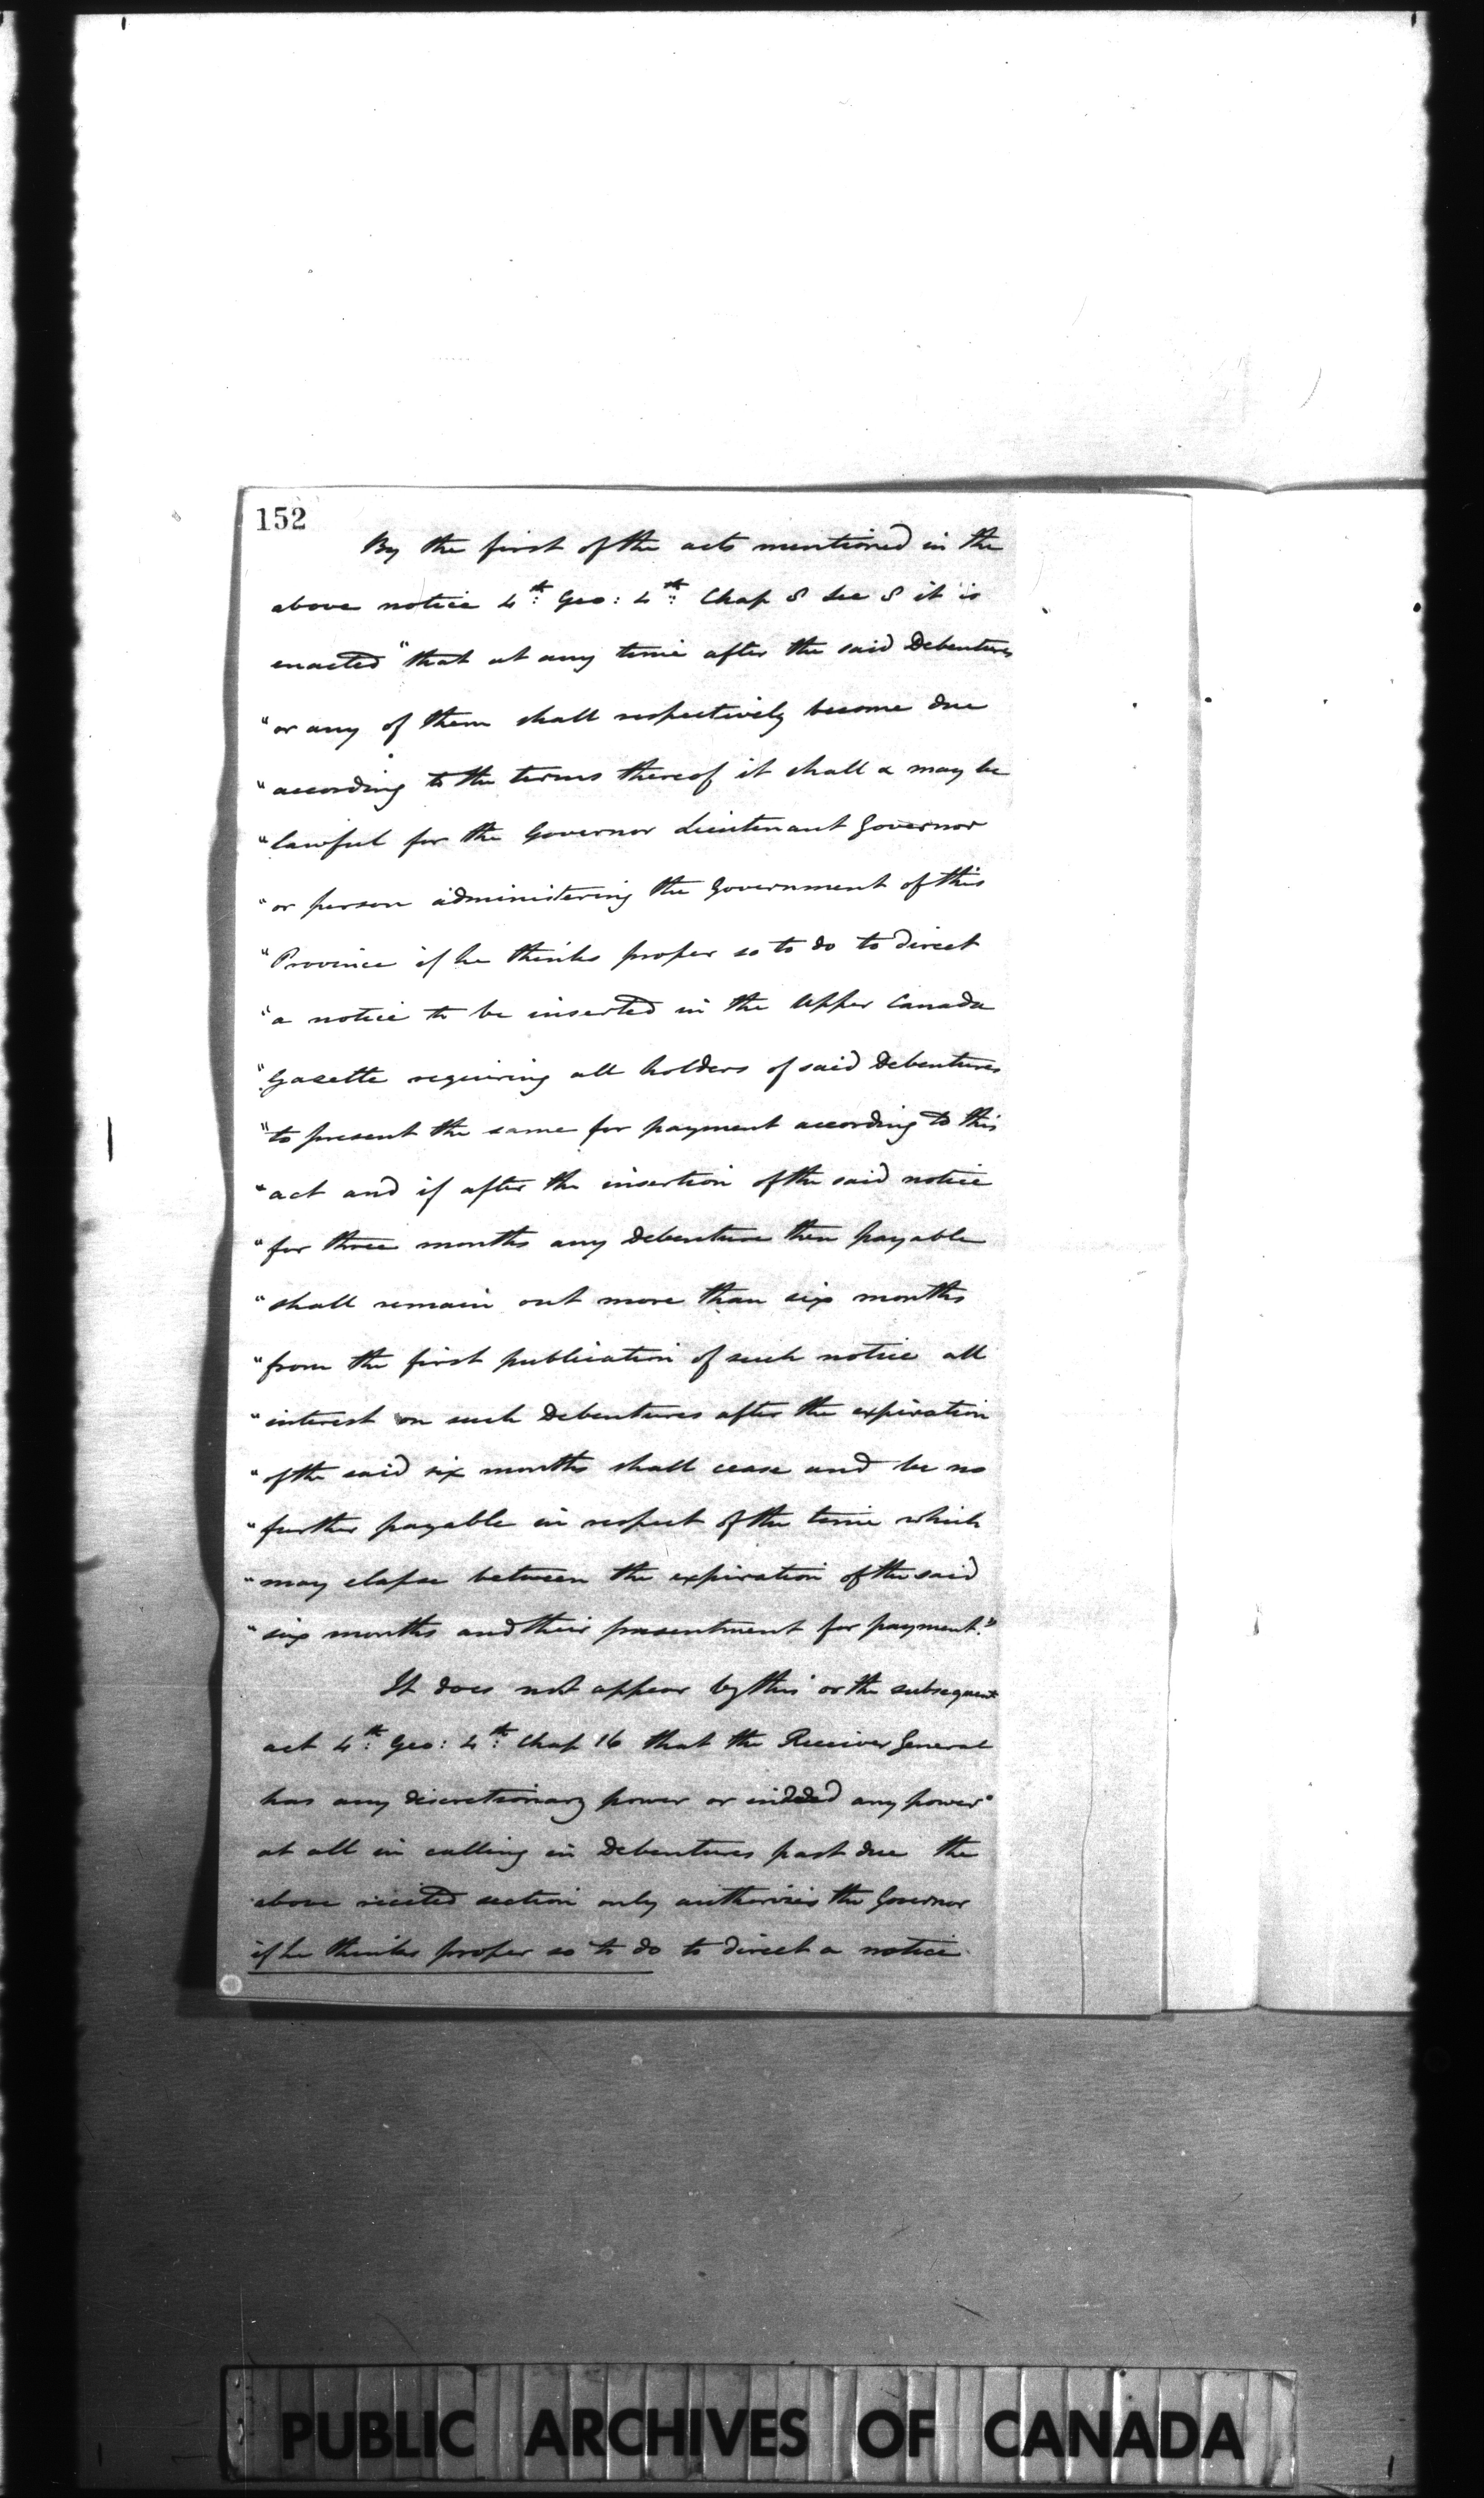 152
By the first of the acts mentioned in the
above notice 4th: Geo: 4th: Chap 8 Sec 8 it is
enacted "that at any time after the said Debentures
"or any of them shall respectively become due
"according to the terms thereof it shall & may be
"lawful for the Governor Lieutenant Governor
"or person administering the Government of this
"Province if he thinks proper so to do to direct
"a notice to be inserted in the Upper Canada
"Gazette requiring all holders of said Debentures
"to present the same for payment according to this
"act and if after the insertion of the said notice
"for three months any Debenture then payable
"shall remain out more than six months
"from the first publication of such notice all
"interest on such Debentures after the expiration
"of the said six months shall cease and be no
"further payable in respect of the time which
"may elapse between the expiration of the said
"six months and their presentment for payment."
It does not appear by this or the subsequent
act 4th: Geo: 4th: Chap 16 that the Receiver General
has any discretionary power or indeed any power
at all in calling in Debentures past due the
above recited section only authorizes the Governor
if he thinks proper so to do to direct a notice
PUBLIC ARCHIVES OF CANADA